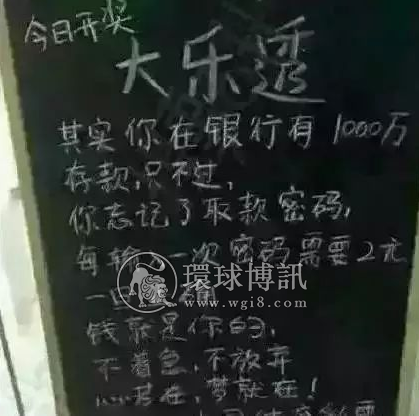 今日开奖
大乐透
其实你在银行有1000万
存款,只不过,
你忘记了取款密码,
每输入一次密码需要2元
環球博訊
www.wgi8.com
一旦
钱就是你的,
不着急,不放弃
心若在,梦就在!